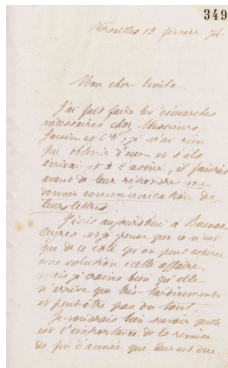 349
Versailles 13 février 74
Mon cher Emile
J'ai fait faire les démarches
nécessaires chez Messieurs
et Cie, je n'ai rien
pu obtenir d'eux et s'ils
écrivai et à l'avenir, il faudrait
avant de leur répondre me
donner communication de
leurs lettres.
J'écris aujourd'hui à Buenos
Ayres et je pense que ce n'est
que de ce côté qu'on peut espérer
une solution à cette affaire,
mais je crains bien qu'elle
n'arrive que très tardivement
et peut être pas du tout.
Je voudrais bien savoir quelle
est l'importance de la remise
de fin d'année que leur est due